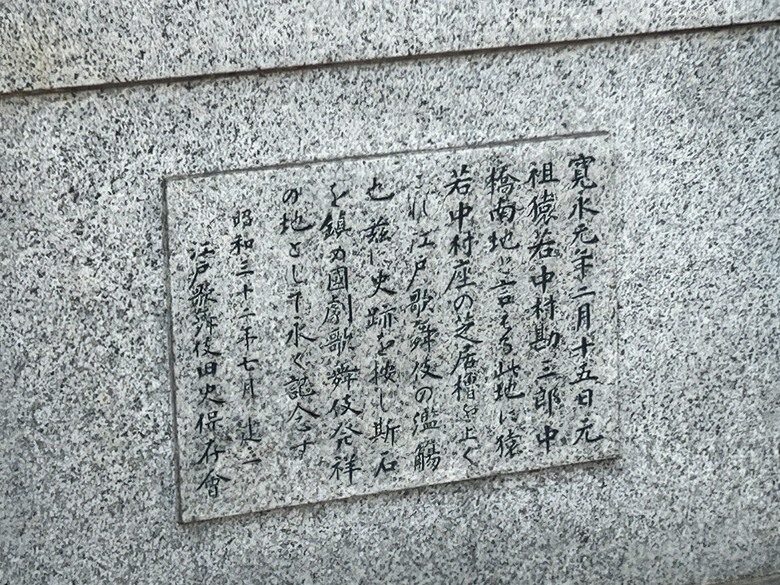 寛永元年二月十五日元
祖猿若中村勘三郎中
橋南地と言える此地に猿
若中村座の芝居櫓を上く
これ江戸歌舞伎の濫觴
也茲に史跡を按し斯石
を鎮め國劇歌舞伎発祥
の地として永く記念す
昭和三十二年七月 建之
江戸歌舞伎旧史保存會